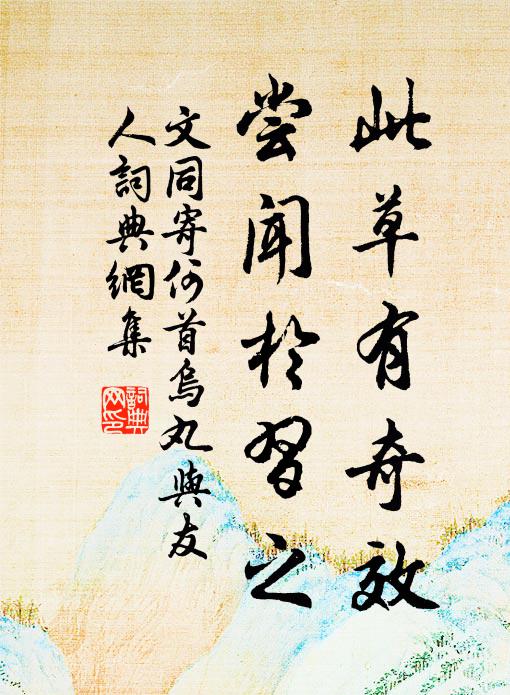 此草有奇效
尝闻於習之
文同寄何首烏丸與友
人詞典網集
詞典
网印